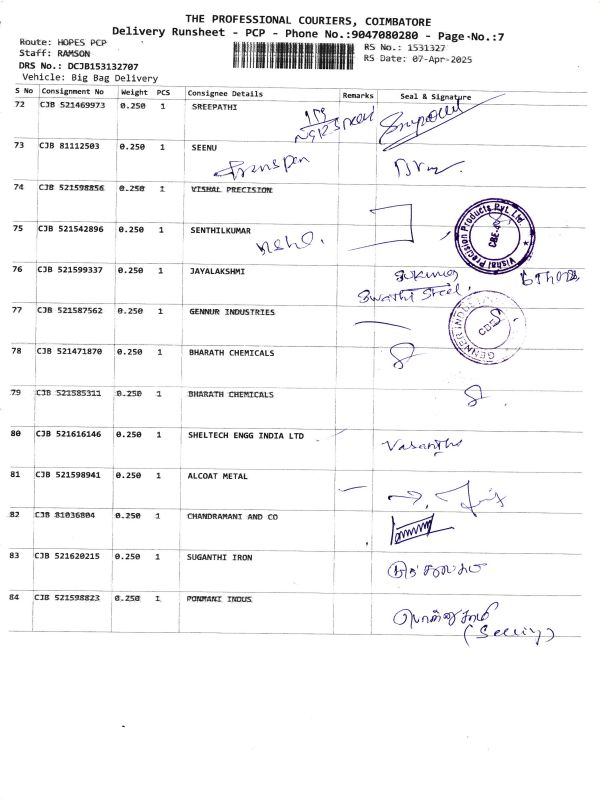 THE PROFESSIONAL COURIERS, COIMBATORE
Delivery Runsheet - PCP - Phone No.:9047080280 - Page-No.:7
Route: HOPES PCP
Staff: RAMSON
RS No.: 1531327
DRS No.: DCJB153132707
RS Date: 07-Apr-2025
Vehicle: Big Bag Delivery
S No Consignment No Weight PCS Consignee Details Remarks Seal & Signature
72 CJB 521469973 0.250 1 SREEPATHI
73 CJB 81112503 0.250 1 SEENU
74 CJB 521598856 0.250 1 VISHAL PRECISION
Vishal Precision Products Pvt. Ltd.
75 CJB 521542896 0.250 1 SENTHILKUMAR
76 CJB 521599337 0.250 1 JAYALAKSHMI
Swathi Steel.
77 CJB 521587562 0.250 1 GENNUR INDUSTRIES
78 CJB 521471870 0.250 1 BHARATH CHEMICALS
79 CJB 521585311 0.250 1 BHARATH CHEMICALS
80 CJB 521616146 0.250 1 SHELTECH ENGG INDIA LTD
Vasantha
81 CJB 521598941 0.250 1 ALCOAT METAL
82 CJB 81036804 0.250 1 CHANDRAMANI AND CO
83 CJB 521620215 0.250 1 SUGANTHI IRON
84 CJB 521598823 0.250 1 PONMANI INDUS